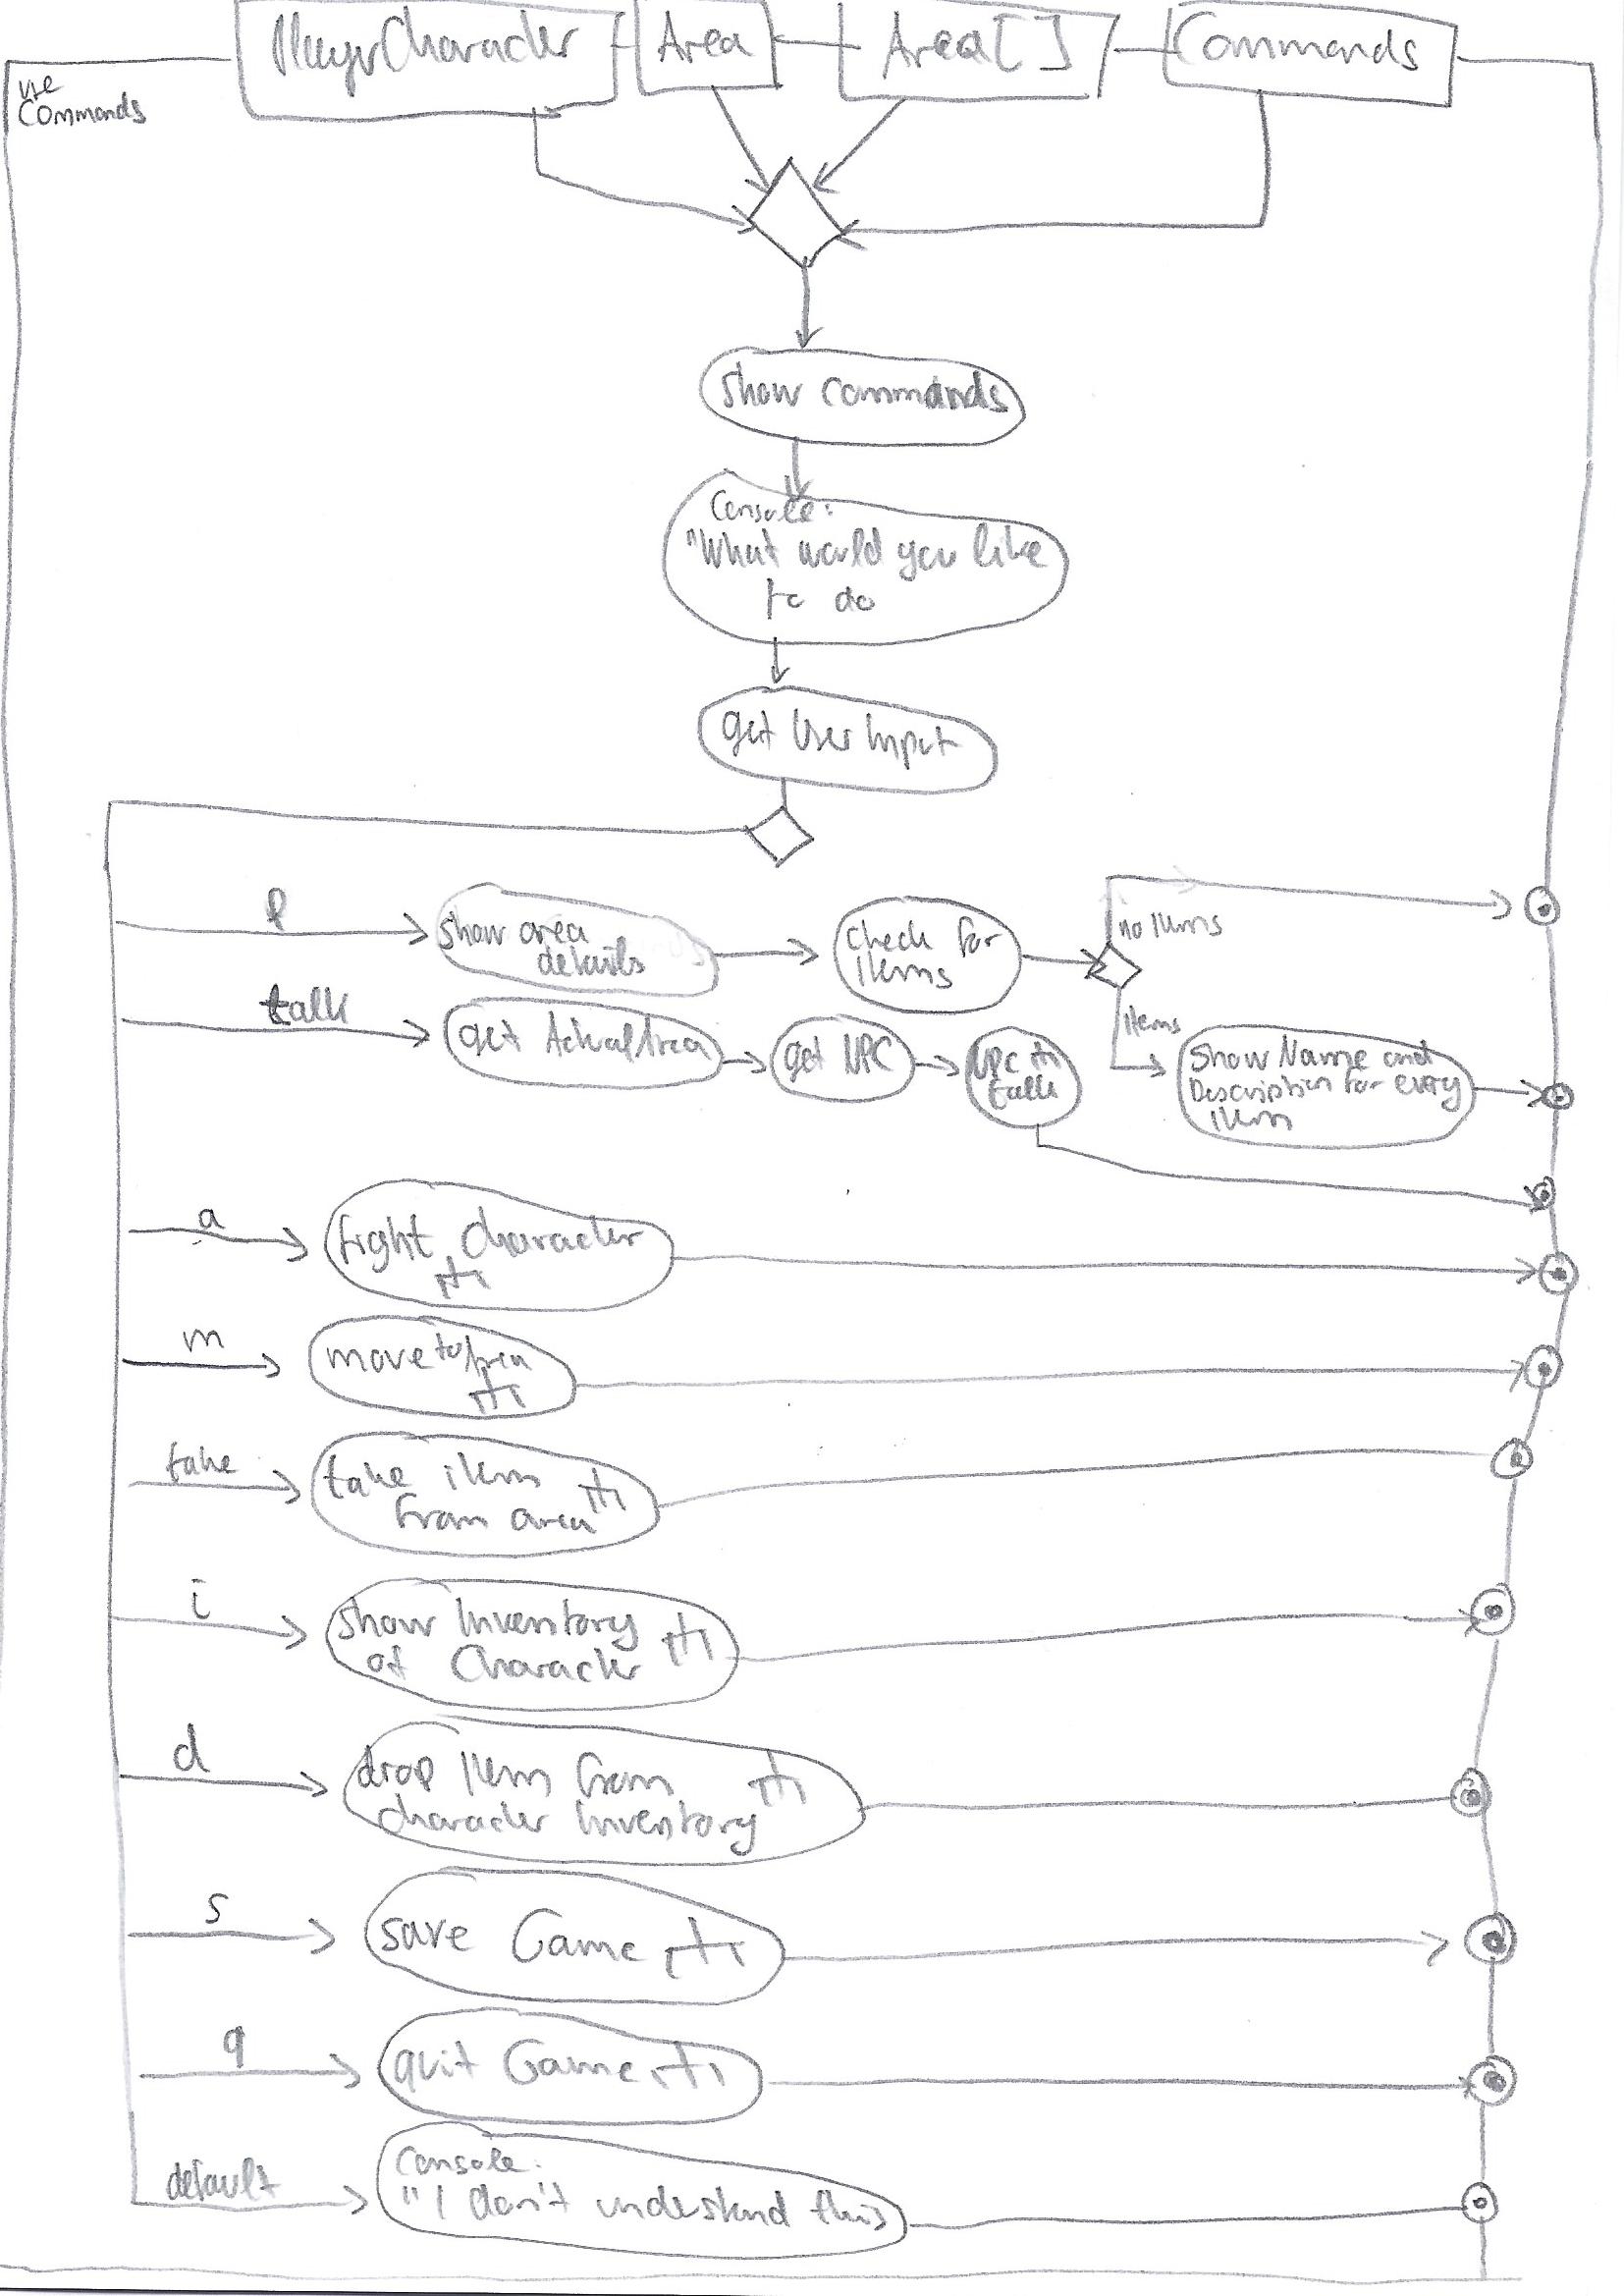 PlayerCharacter
Area
Area[]
Commands
use
Commands
show commands
Console:
"What would you like
to do
get User Input
l
show area
details
check for
items
no Items
talk
get ActualArea
get NPC
NPC
talk
Items
Show Name and
Description for every
item
a
fight Character
m
move to Area
take
take item
from area
i
show Inventory
of Character
d
drop Item from
character Inventory
s
save Game
q
quit Game
default
Console:
"I don't understand this